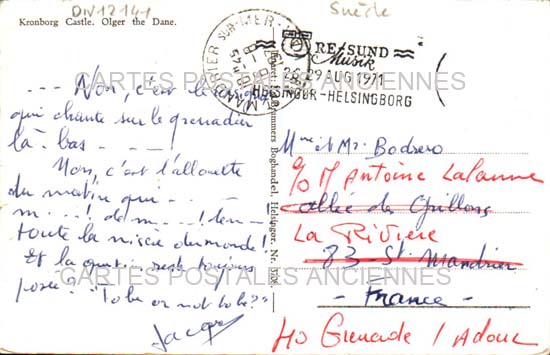 DN12141
Suède
Kronborg Castle. Olger the Dane.
MANDRIER SUR-MER
ØRESUND
Musik
26-29 AUG 1971
HELSINGØR-HELSINGBORG
CARTES POSTALES ANCIENNES
--- Non, c'est le rossignol
qui chante sur le grenadier
là-bas ----!
Non, c'est l'allouette
du matin qui ---
m...! del m...! den--
toute la misère du monde!
Et la question reste toujours
posée: "To be or not to be?"
Jacques
Boghandel, Helsingør. Nr.
Mme et Mr. Bodrero
c/o M Antoine Lalanne
Allée des Grillons
La Rivière
83 - St. Mandrier
- France -
40 Grenade / Adour
CARTES POSTALES ANCIENNES